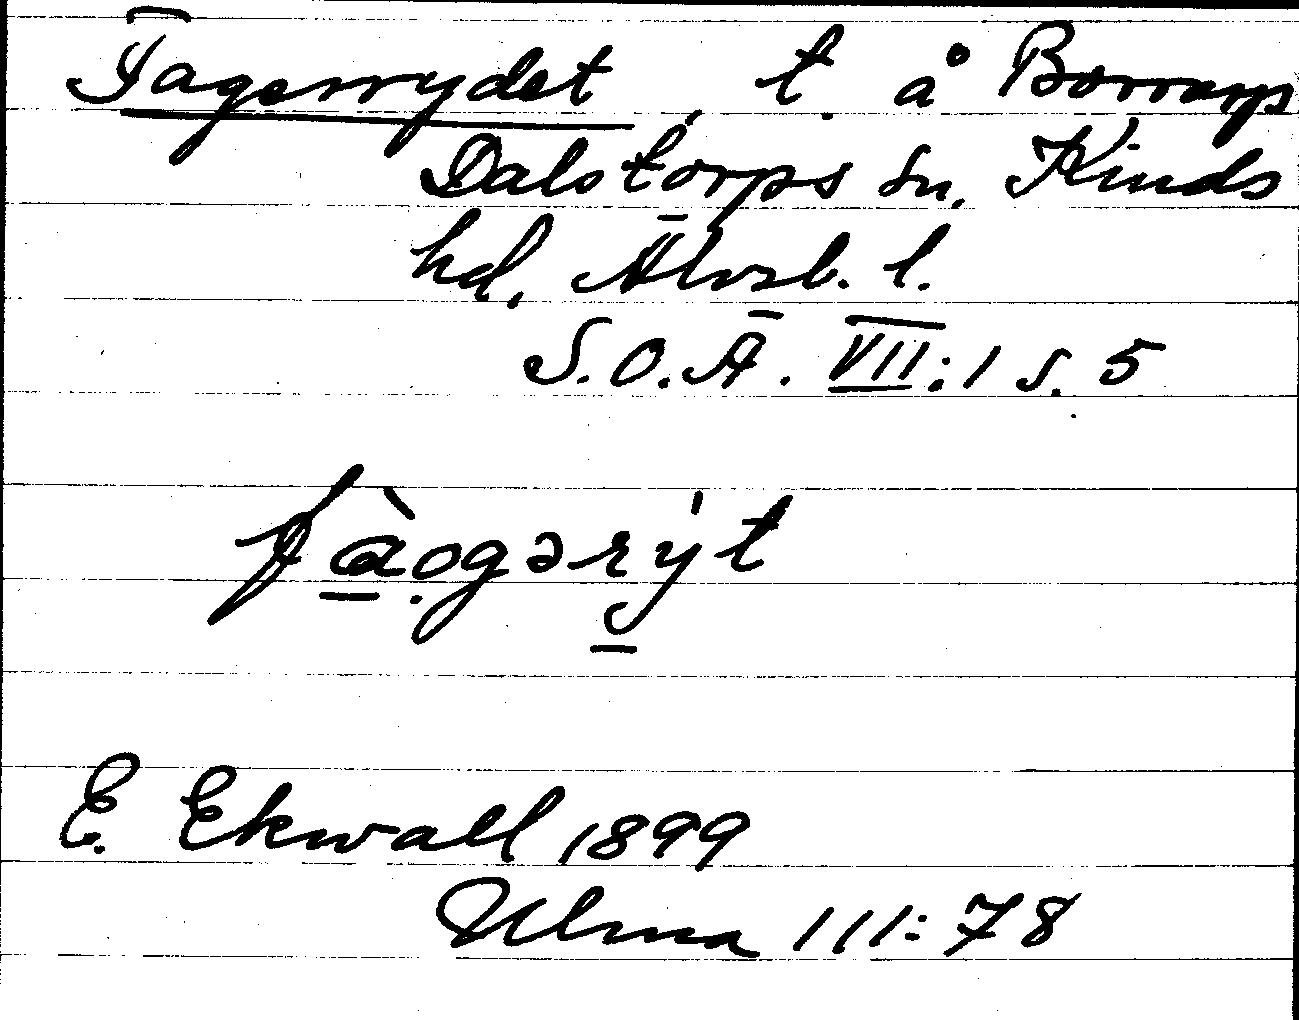 Fagerrydet, t. å Borrarp
Dalstorps sn. Kinds
hd, Älvsb. l.
S.O.Ä. VII:1 s. 5
fàogərýt
E. Ekwall 1899
Ulma 111:78